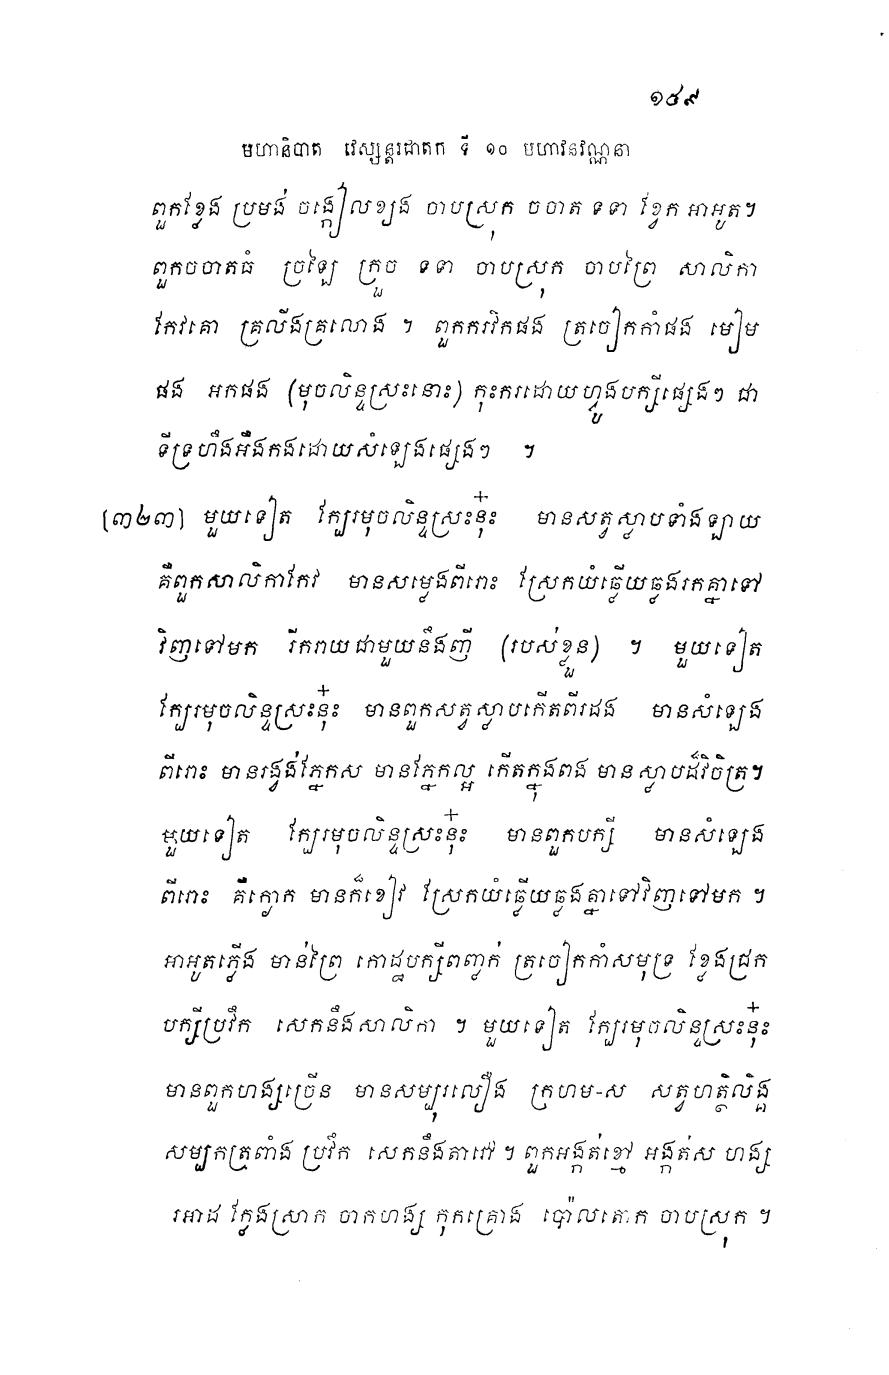 ១៤៩
មហានិបាត វេស្សន្តរជាតក ទី ១០ មហាវនវណ្ណនា
ពួកខ្វែង ប្រមង់ ចង្កៀលខ្យង ចាបស្រុក ចចាត ទទា ខ្វែក អាអូត។
ពួកចចាតធំ ច្រឡៃ ក្រួច ទទា ចាបស្រុក ចាបព្រៃ សាលិកា
កែវគោ គ្រលីងគ្រលោង ។ ពួកករវិកផង ត្រចៀកកាំផង មៀម
ផង អកផង (មុចលិន្ទស្រះនោះ) កុះករដោយហ្វូងបក្សីផ្សេងៗ ជា
ទីទ្រហឹងអឺងកងដោយសំឡេងផ្សេងៗ ។
[៣២៣] មួយទៀត ក្បែរមុចលិន្ទស្រះនុ៎ះ មានសត្វស្លាបទាំងឡាយ
គឺពួកសាលិកាកែវ មានសម្លេងពីរោះ ស្រែកយំឆ្លើយឆ្លងរកគ្នាទៅ
វិញទៅមក រីករាយជាមួយនឹងញី (របស់ខ្លួន) ។ មួយទៀត
ក្បែរមុចលិន្ទស្រះនុ៎ះ មានពួកសត្វស្លាបកើតពីរដង មានសំឡេង
ពីរោះ មានរង្វង់ភ្នែកស មានភ្នែកល្អ កើតក្នុងពង មានស្លាបដ៏វិចិត្រ។
មួយទៀត ក្បែរមុចលិន្ទស្រះនុ៎ះ មានពួកបក្សី មានសំឡេង
ពីរោះ គឺក្ងោក មានក៏ខៀវ ស្រែកយំឆ្លើយឆ្លងគ្នាទៅវិញទៅមក ។
អាអូតភ្លើង មាន់ព្រៃ កោដ្ឋបក្សីពញ្ជក់ ត្រចៀកកាំសមុទ្រ ខ្លែងជ្រក
បក្សីប្រវឹក សេកនឹងសាលិកា ។ មួយទៀត ក្បែរមុចលិន្ទស្រះនុ៎ះ
មានពួកហង្សច្រើន មានសម្បុរលឿង ក្រហម-ស សត្វហត្ថិលិង្គ
សម្បកត្រពាំង ប្រវឹក សេកនឹងតាវៅ ។ ពួកអង្កត់ខ្មៅ អង្កត់ស ហង្ស
រអាដ ក្លែងស្រាក ចាកហង្ស កុកគ្រោង ប៉ោលតោក ចាបស្រុក ។